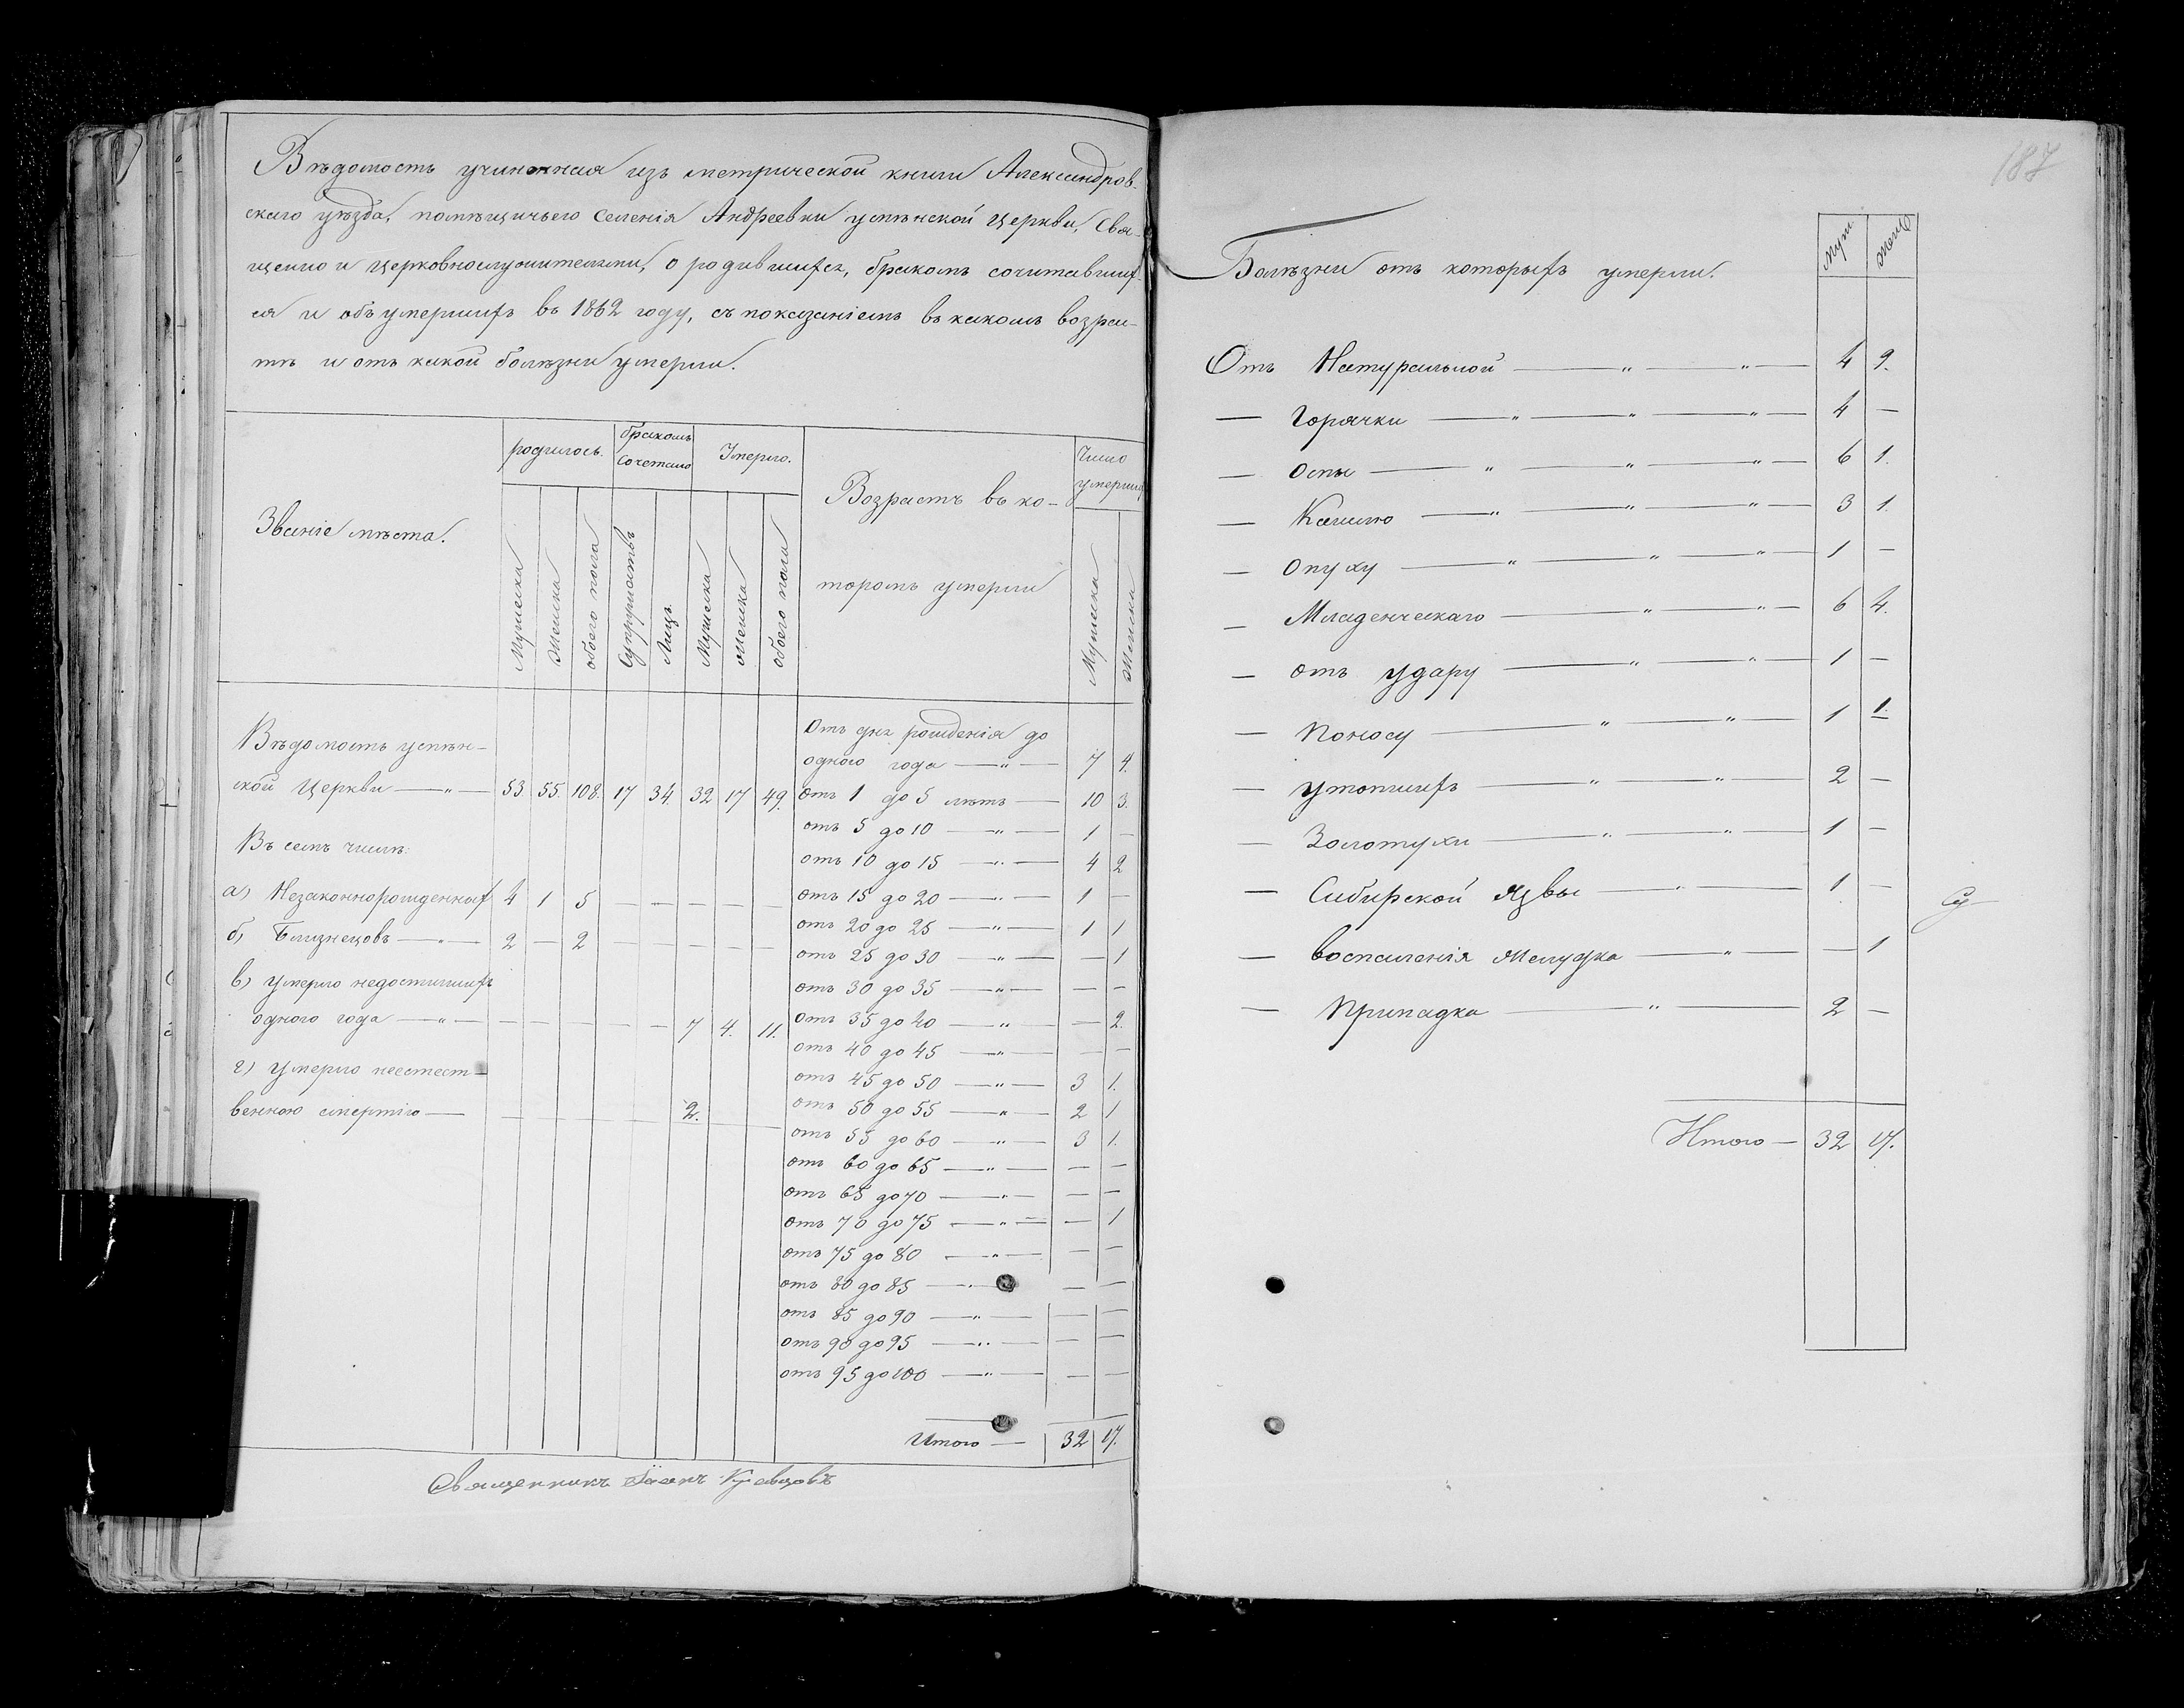 Вѣдомость учиненная изъ метрической книги Александров-
скаго уѣзда, помѣщичьего Селенія Андреевки успѣнской Церкви, Свя-
щенно и Церковнослужителями, о родившихся, бракомъ сочитавших-
ся и объ умершихъ въ 1862 году, съ показаніемъ въ какомъ возрас-
тѣ и отъ какой болѣзни умерли.
Званіе мѣста.
родилось.
бракомъ
Сочетано
Умерло.
Возрастъ въ ко-
торомъ умерли
Число
умерших
Мужеска
Женска
обоего пола
Супружествъ
Лицъ
Мужеска
Женска
обоего пола
Мужеска
Женска
Вѣдомость успѣн-
ской Церкви — „ — 53. 55. 108. 17 34. 32 17 49.
Въ семъ числѣ:
а) Незаконнорожденных 4 1 5 — — — — —
б) Близнецовъ — „ — 2 — 2 — — — — —
в) умерло недостигшихъ
одного года — „ — — — — — — 7 4. 11.
г) умерло неестест-
венною смертію — — — — — — 2. — —
Отъ дня рожденія до
одного года — „ — 7 4.
отъ 1 до 5 лѣтъ — 10 3.
отъ 5 до 10 — „ — 1 —
отъ 10 до 15 — „ — 4 2
отъ 15 до 20 — „ — 1 —
отъ 20 до 25 — „ — 1 1
отъ 25 до 30 — „ — — 1
отъ 30 до 35 — „ — — —
отъ 35 до 40 — „ — — 2.
отъ 40 до 45 — „ — — —
отъ 45 до 50 — „ — 3 1.
отъ 50 до 55 — „ — 2 1
отъ 55 до 60 — „ — 3 1.
отъ 60 до 65 — „ — — —
отъ 65 до 70 — „ — — —
отъ 70 до 75 — „ — — 1
отъ 75 до 80 — „ — — —
отъ 80 до 85 — „ — — —
отъ 85 до 90 — „ — — —
отъ 90 до 95 — „ — — —
отъ 95 до 100 — „ — — —
Итого — 32 17.
Священникъ Іоаннъ
187
Болѣзни отъ которыхъ умерли.
Муж
Женс
Отъ Натуральной — „ — „ — 4 9.
— Горячки — „ — „ — „ — 4 —
— Оспы — „ — „ — „ — 6 1.
— Кашлю — „ — „ — „ — 3 1.
— Опуху — „ — „ — „ — 1 —
— Младенческаго — „ — „ — 6 4.
— отъ удару — „ — „ — 1 —
— Поносу — „ — „ — 1 1.
— утопшихъ — „ — „ — 2 —
— Золотухи — „ — „ — 1 —
— Сибирской Язвы — „ — 1 —
— воспаленія Желудка — „ — — 1
— Припадка — „ — 2 —
Итого — 32 17.